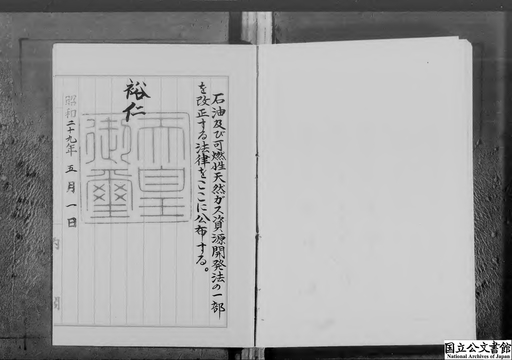 石油及び可燃性天然ガス資源開発法の一部
を改正する法律をここに公布する。
裕仁
天皇御璽
昭和二十九年五月一日
国立公文書館
National Archives of Japan